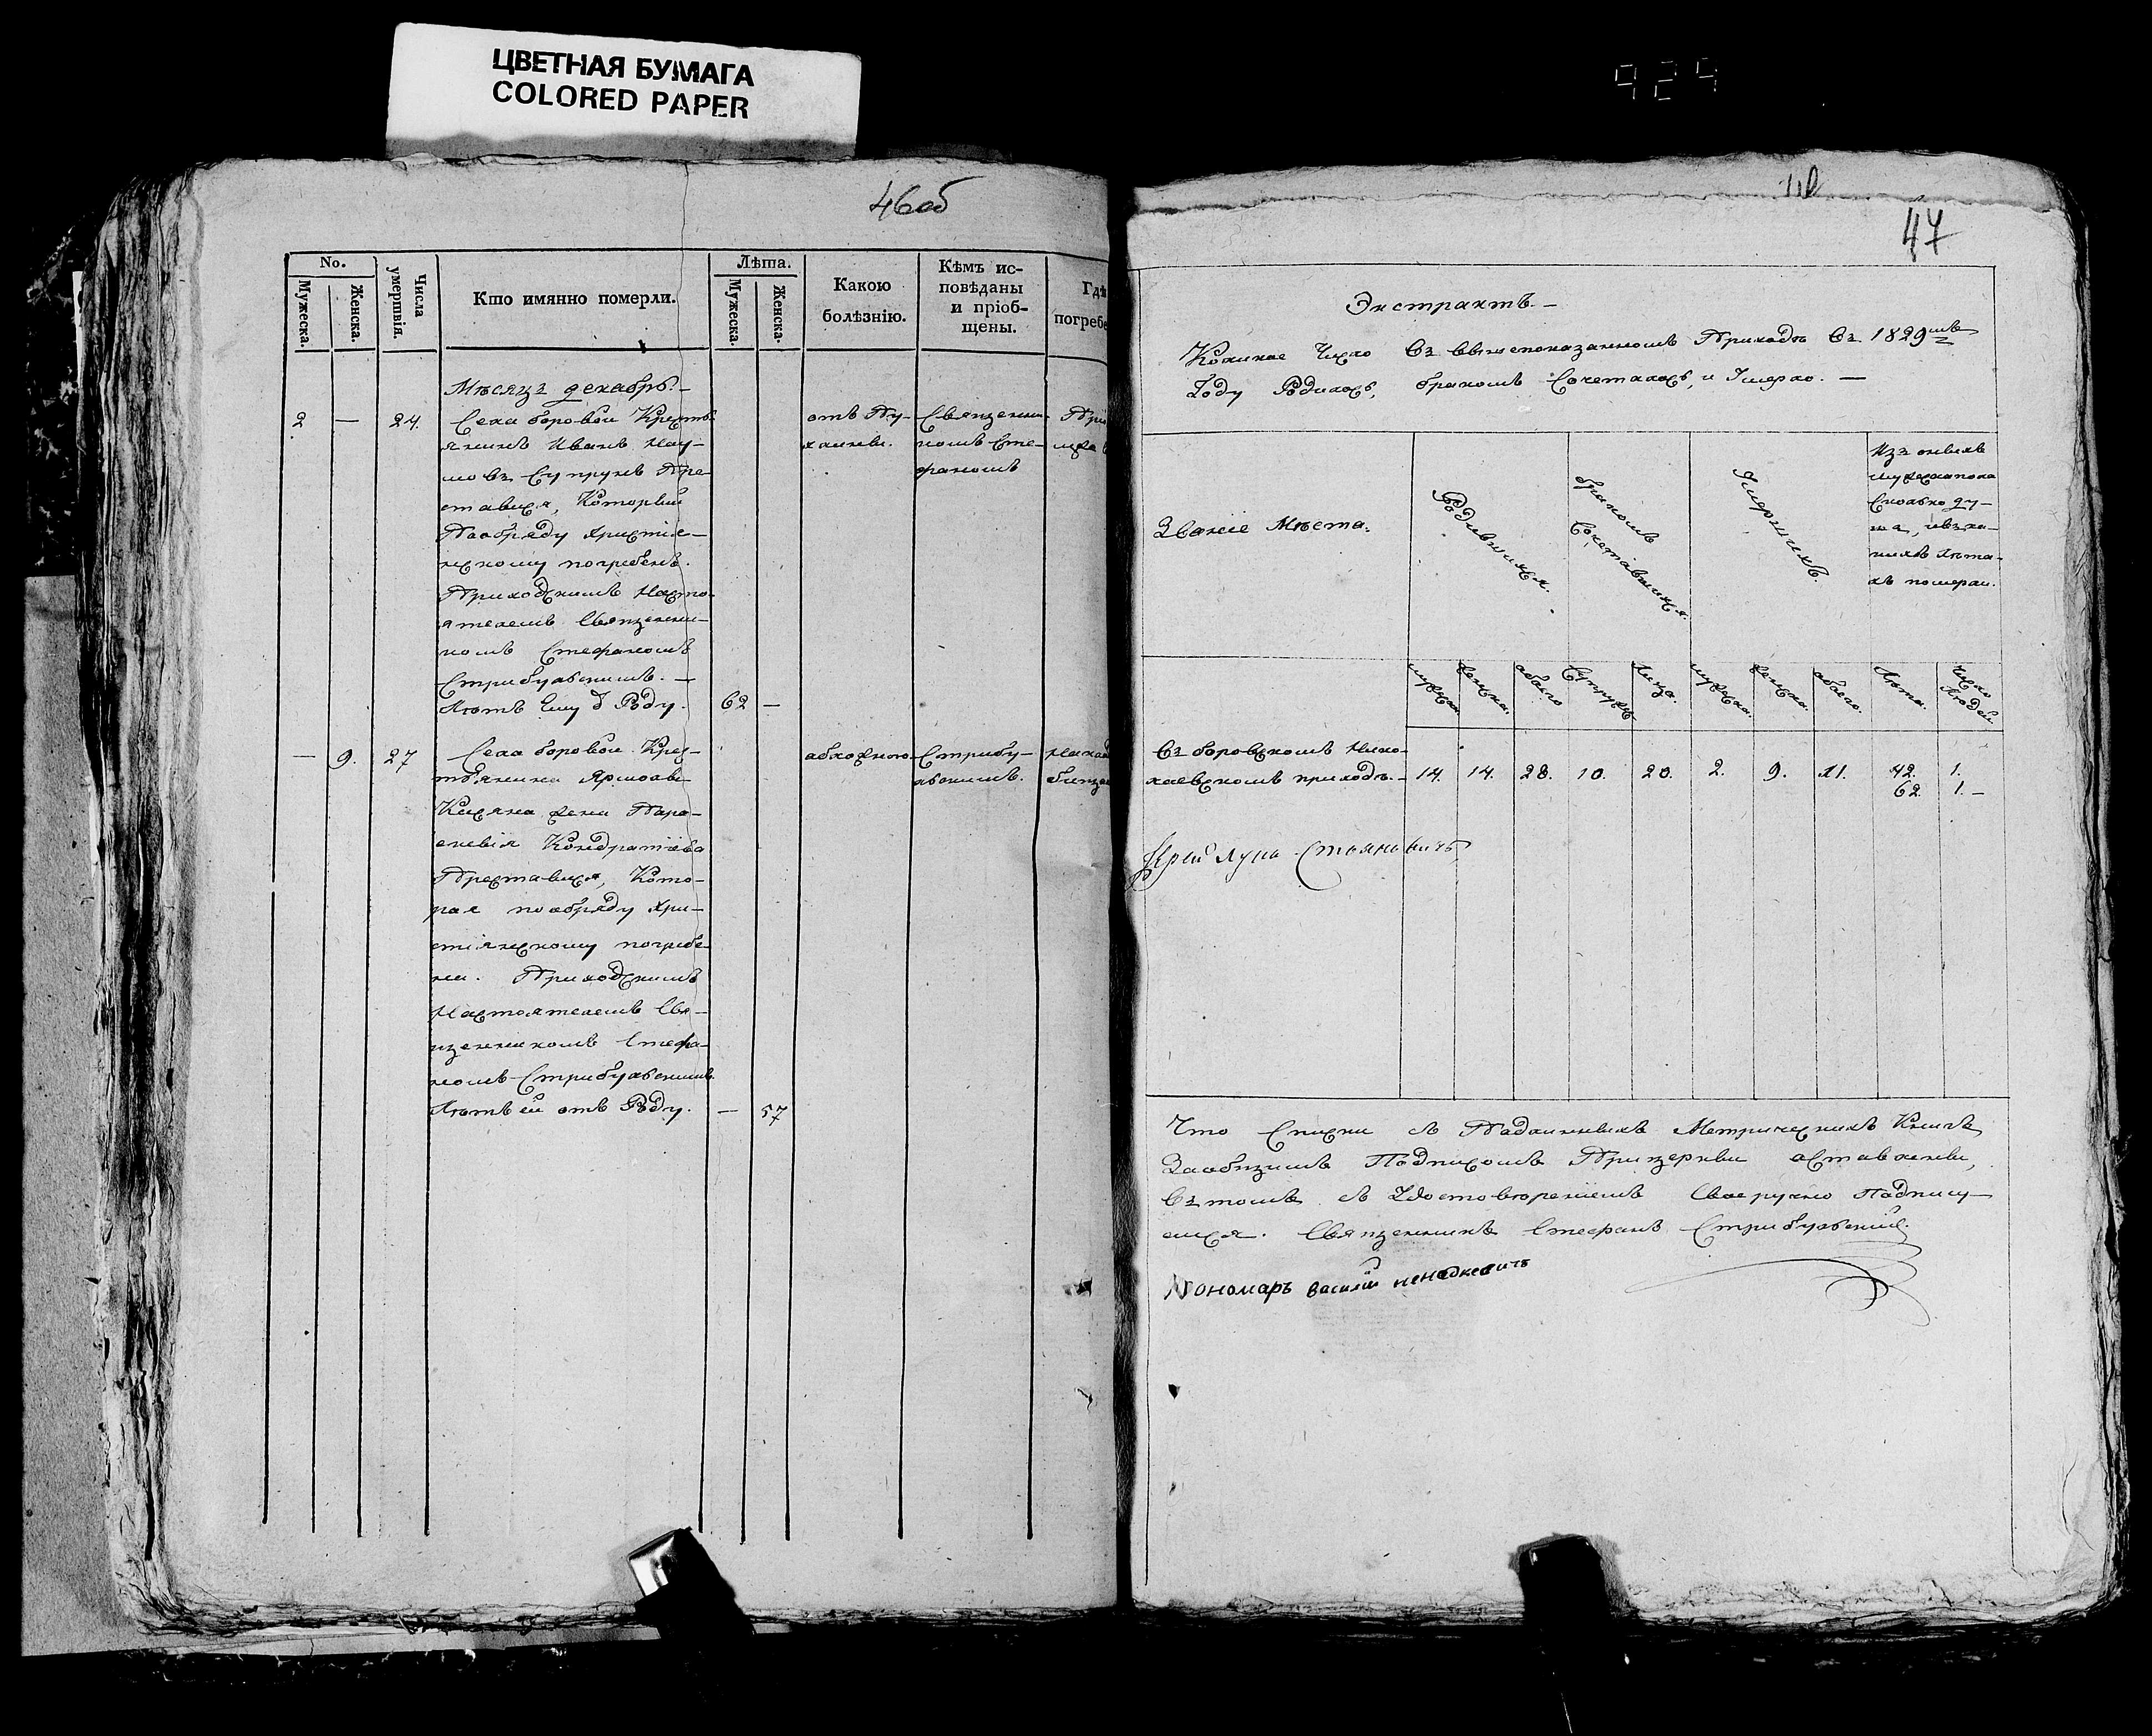 ЦВЕТНАЯ БУМАГА
COLORED PAPER
924
46об
No.
Мужеска.
Женска.
Числа умертвія.
Кто имянно померли.
Лѣта.
Мужеска.
Женска.
Какою
болѣзнію.
Кѣмъ ис-
повѣданы
и пріоб-
щены.
Гдѣ
погребе
Мѣсяцъ декабрь.
2 — 24. Села боровои Кресть
янинъ Иванъ Нау-
мовъ Супрунъ Пре
ставися, Который
Пообряду христіа-
нскому погребенъ.
Приходскимъ Насто
ятелемъ Священни-
комъ Стефаномъ
Стрибульскимъ. —
Лѣтъ Ему Роду. 62 —
отъ Пу-
хлины.
Священни-
комъ Сте-
фаномъ
— 9. 27 Села боровои Крес-
тьянина
жена Пара-
скевія Кондратіева
Преставися, Кото-
рая пообряду хри-
стіянскому погребе-
на. Приходскимъ
Настоятелемъ Свя-
щенникомъ Стефа-
номъ Стрибульскимъ
Лѣтъ ей отъ Роду. — 57
Стрибу-
льскимъ.
47
Экстрактъ —
Коликое Число Въ вышепоказанномъ Приходѣ Въ 1829мъ
Году Родилось, бракомъ Сочеталось, и Умерло. —
Званіе Мѣста.
Родившихся.
бракомъ Сочетавшихся.
Умершихъ.
Изъ оныхъ
мужескапола
Сколько ду-
ша, ивъ ка-
кихъ лѣта-
хъ померли.
мужеска.
женска.
обоего
Супруж.
Лица.
мужеска.
женска.
обоего.
Лѣта.
Число Людей
Въ боровскомъ Нико-
лаевскомъ приходѣ. — 14. 14. 28. 10. 20. 2. 9. 11. 42. 1.
62. 1. —
Іерей Лука Стояновичъ
Что Списки съ Подлинныхъ Метрическихъ Книгъ
Заобщимъ Подписомъ Прицеркви оставлены,
Въ томъ съ Удостовѣреніемъ Своеручно Подпису-
емся. Священникъ Стефанъ Стрибульскій.
Пономаръ василій ненадкевичъ